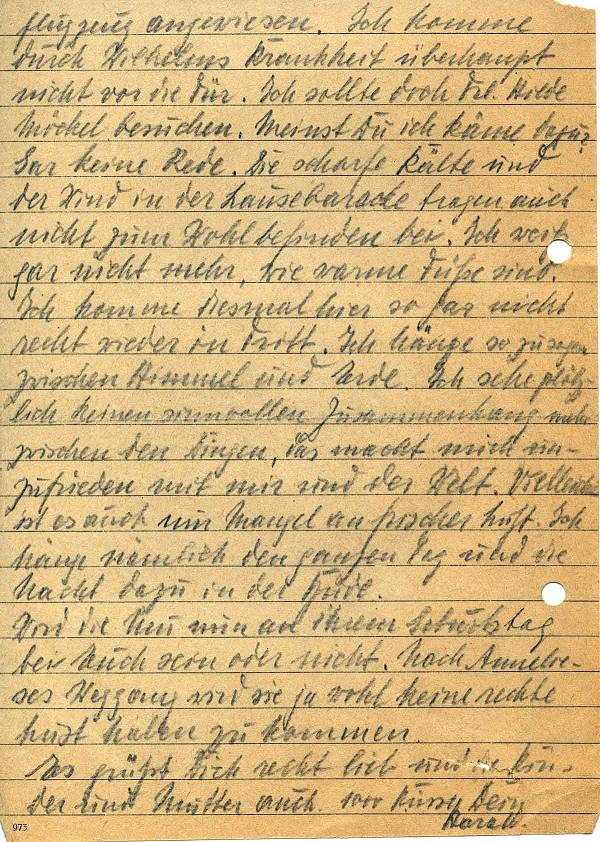 flugzeug angewiesen. Ich komme
durch Wilhelms Krankheit überhaupt
nicht vor die Tür. Ich sollte doch Frl. Hilde
Möckel besuchen. Meinst Du ich käme dazu?
Gar keine Rede. Die scharfe Kälte und
der Wind in der Lausebaracke tragen auch
nicht zum Wohlbefinden bei. Ich weiß
gar nicht mehr, wie warme Füße sind.
Ich komme diesmal hier so gar nicht
recht wieder in Tritt. Ich hänge sozusagen
zwischen Himmel und Erde. Ich sehe plötz-
lich keinen sinnvollen Zusammenhang mehr
zwischen den Dingen, das macht mich un-
zufrieden mit mir und der Welt. Vielleicht
ist es auch nur Mangel an frischer Luft. Ich
hänge nämlich den ganzen Tag und die
Nacht dazu in der Bude.
Wird die nun an ihrem Geburtstag
bei Euch sein oder nicht. Nach Annelie-
ses Weggang wird sie ja wohl keine rechte
Lust haben zu kommen.
Es grüßt Dich recht lieb und die Kin-
der und Mutter auch. 1000 Küsse Dein
Harald.
973